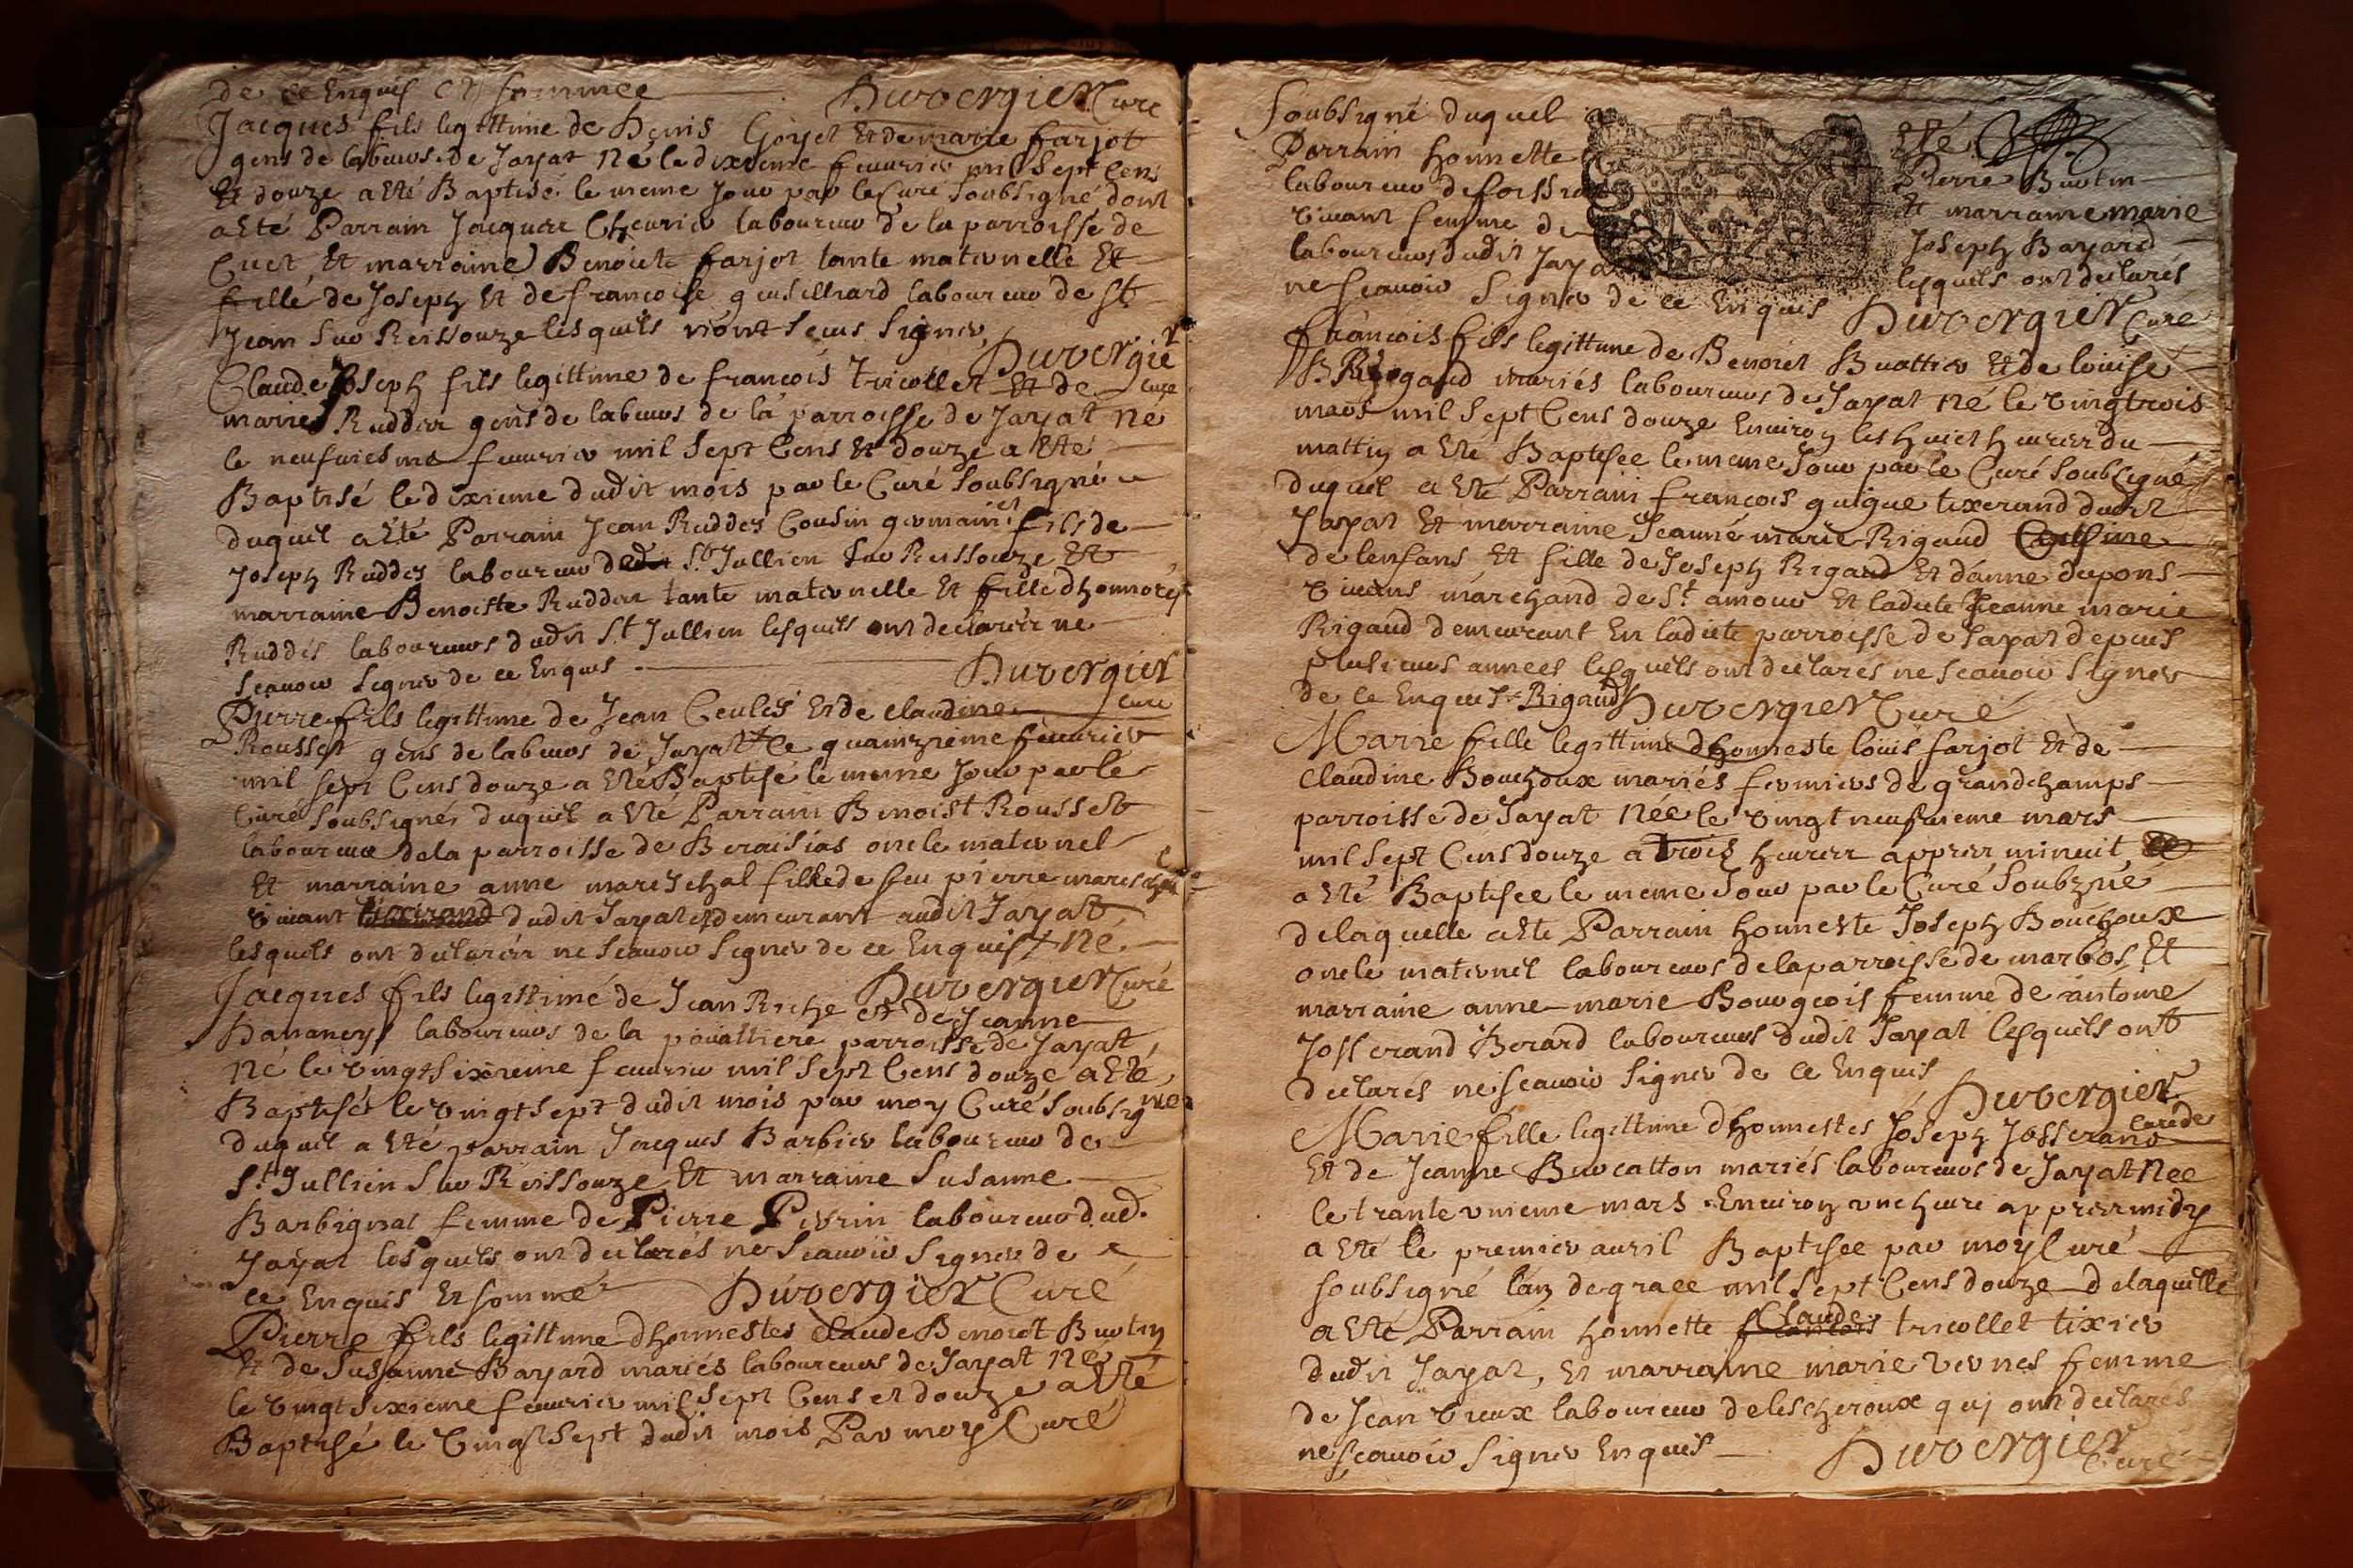 de ce Enquis Et sommee Duvergier Curé
Jacques fils legittime de Denis Goyet Et de marie farjot
gens de labeurs de Jayat Né le dixieme feurier mil sept Cens
Et douze a Eté Baptisé le meme Jour par le Curé soubsigné dont
a Eté Parrain Jacques Cheurier laboureur de la parroisse de
Cuet, Et marraine Benoiste farjot tante maternelle Et
fille de Joseph Et de francoise guilliard laboureur de St
Jean sur Reissouze lesquels n'ont sceus signer
Duvergier
Claude Joseph fils legittime de francois Tricollet Et de Curé
marie Ruddes gens de labeurs de la parroisse de Jayat Né
le neufuiesme feurier mil sept Cens Et douze a Eté
Baptisé le dixieme dudit mois par le Curé soubsigné
duquel a Eté Parrain Jean Ruddes Cousin germain et fils de
Joseph Ruddes laboureur de St Jullien sur Reissouze Et
marraine Benoiste Ruddes tante maternelle Et fille dhonnorés
Ruddes laboureurs dudit St Jullien lesquels ont declarés ne
scauoir signer de ce Enquis Duvergier
Curé
Pierre fils legittime de Jean Ceulés Et de claudine
Rousset gens de labeurs de Jayat + le quainzieme feurier
mil sept Cens douze a Eté Baptisé le meme Jour par le
Curé soubsigné, duquel a Eté Parrain Benoist Rousset
laboureur de la parroisse de Beraisias oncle maternel
Et marraine anne mareschal fille de feu pierre mareschal
viuant dudit Jayat et demeurant audit Jayat
lesquels ont declarés ne scauoir signer de ce Enquis + Né.
Duvergier Curé
Jacques fils legittimé de Jean Riche et de Jeanne
Dananeys laboureurs de la pouattiere parroisse de Jayat,
Né le vingt sixieme feurier mil sept Cens douze a Eté,
Baptisés le vingt sept dudit mois par moy Curé soubsigné
duquel a Eté parrain Jacques Barbier laboureur de
St Jullien sur Reissouze Et marraine Susanne
Barbignat femme de Pierre Perrin laboureur dud.
Jayat lesquels ont declarés ne scauoir signer de
ce Enquis Et sommé Duvergier Curé
Pierre fils legittime dhonnestes claude Benoist Burtin
Et de Susanne Bayard mariés laboureurs de Jayat Né
le vingt sixieme feurier mil sept Cens et douze a Eté
Baptisé le vingt sept dudit mois Par moy Curé
soubsigné duquel Eté
Parrain honnette Pierre Burtin
laboureur de foissiat Et marraine marie
viuant femme de Joseph Bayard
laboureurs dudit Jayat lesquels ont declarés
ne scauoir signer de ce Enquis Duvergier Curé
francois fils legittime de Benoist Buattier Et de louise
Rigaud mariés laboureurs de Jayat Né le vingtrois
mars mil sept Cens douze Enuiron les huict heures du
mattin a Eté Baptisee le meme Jour par le Curé soubsigné
duquel a Eté Parrain francois guigue tixerand dudit
Jayat Et marraine Jeanne marie Rigaud Cousine
de lenfans Et fille de Joseph Rigaud Et d'anne dupons
viuans marchand de St amour Et ladite Jeanne marie
Rigaud demeurant En ladite parroisse de Jayat depuis
plusieurs annees lesquels ont declarés ne scauoir signer
de ce Enquis = Rigaud Duvergier Curé
Marie fille legittime dhonneste loüis farjot Et de
claudine Bouchoux mariés fermiers de grandchamps
parroisse de Jayat Née le vingt neufuieme mars
mil sept Cens douze a trois heures appres minuit
a Eté Baptisee le meme Jour par le Curé soubzné
delaquelle a Ete Parrain honneste Joseph Bouchoux
oncle maternel laboureurs de la parroisse de marbos, Et
marraine anne marie Bourgeois femme de antoine
Josserand Berard laboureurs dudit Jayat lesquels ont
declarés ne scauoir signer de ce Enquis
Duvergier Curé
Marie fille legittime dhonnestes Joseph Josserand
Et de Jeanne Burcatton mariés laboureurs de Jayat Née
le trante vnieme mars Enuiron vne heure appres midy
a Eté le premier auril Baptisee par moy Curé
soubsigné l'an de grace mil sept Cens douze delaquelle
a Eté Parrain honnette Claude tricollet tixier
dudit Jayat, Et marraine marie vernes femme
de Jean vieux laboureur de lescheroux qui ont declarés
ne scauoir signer Enquis Duvergier
Curé